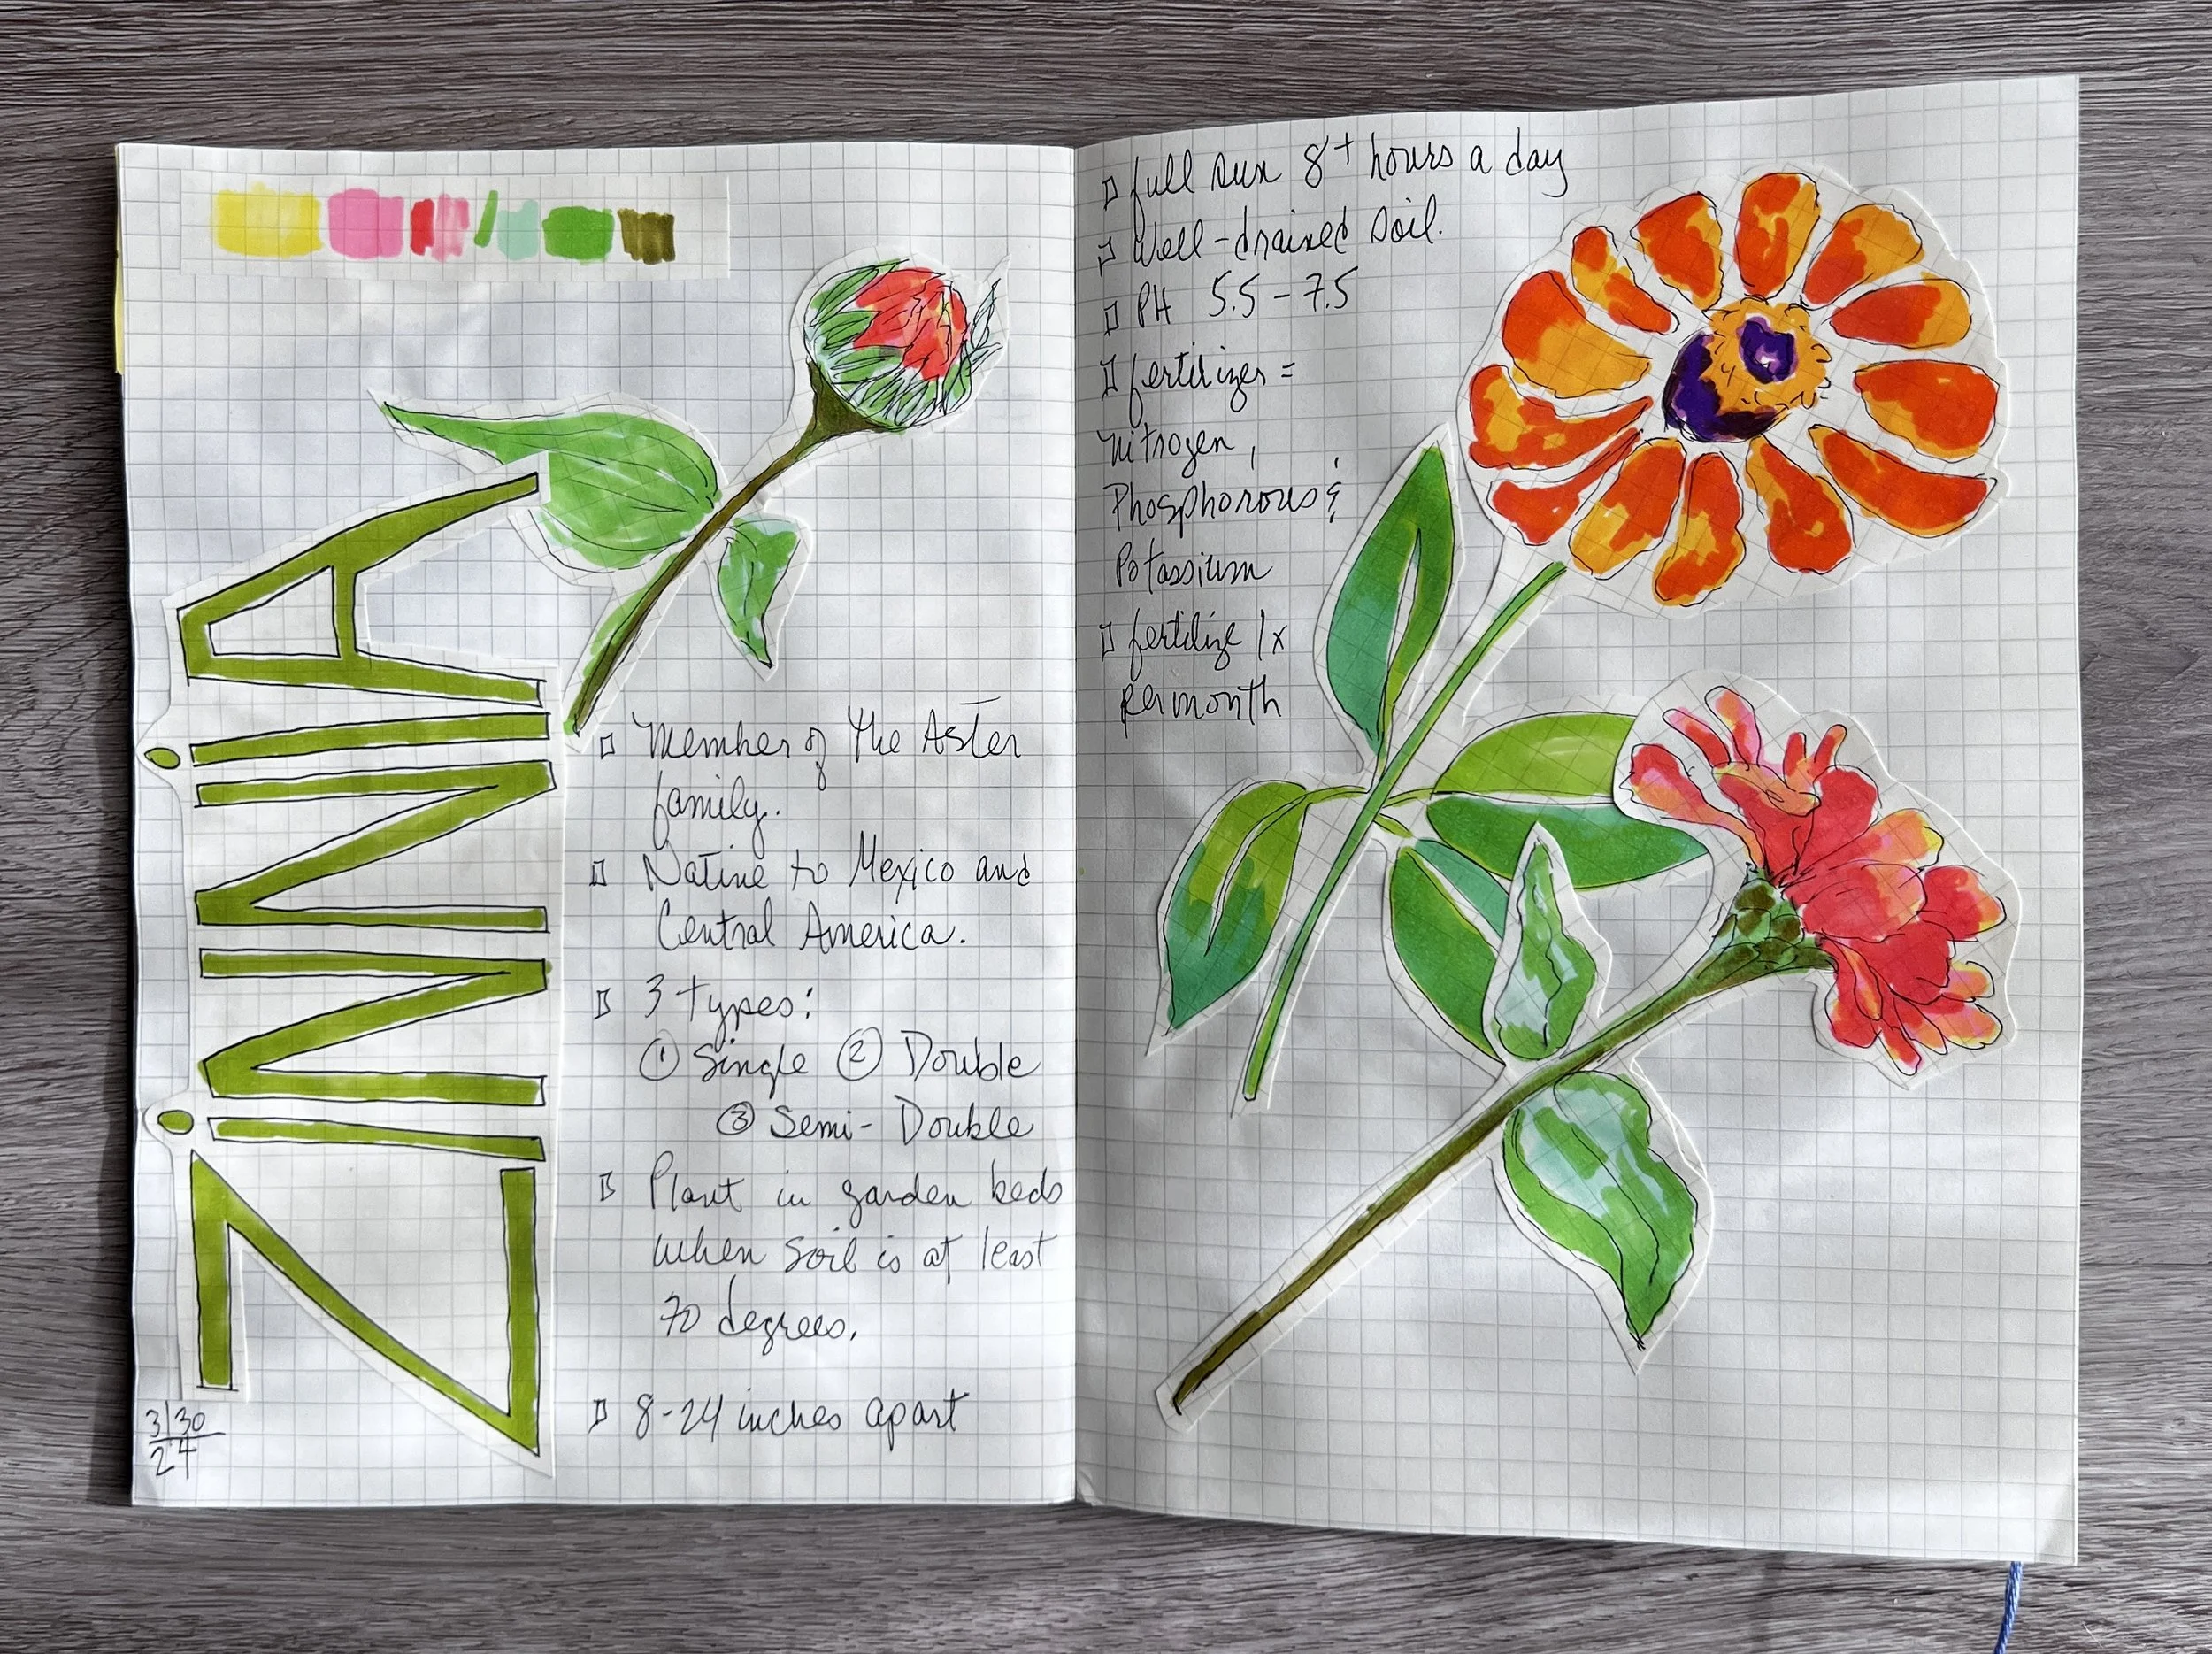 ZiNNiA
Member of the Aster
family.
Native to Mexico and
Central America.
3 types:
① Single ② Double
③ Semi-Double
Plant in garden beds
when soil is at least
70 degrees.
8-24 inches apart
3/30
24
full sun 8+ hours a day
Well-drained soil.
PH 5.5-7.5
fertilizer =
nitrogen,
Phosphorous &
Potassium
fertilize 1x
per month